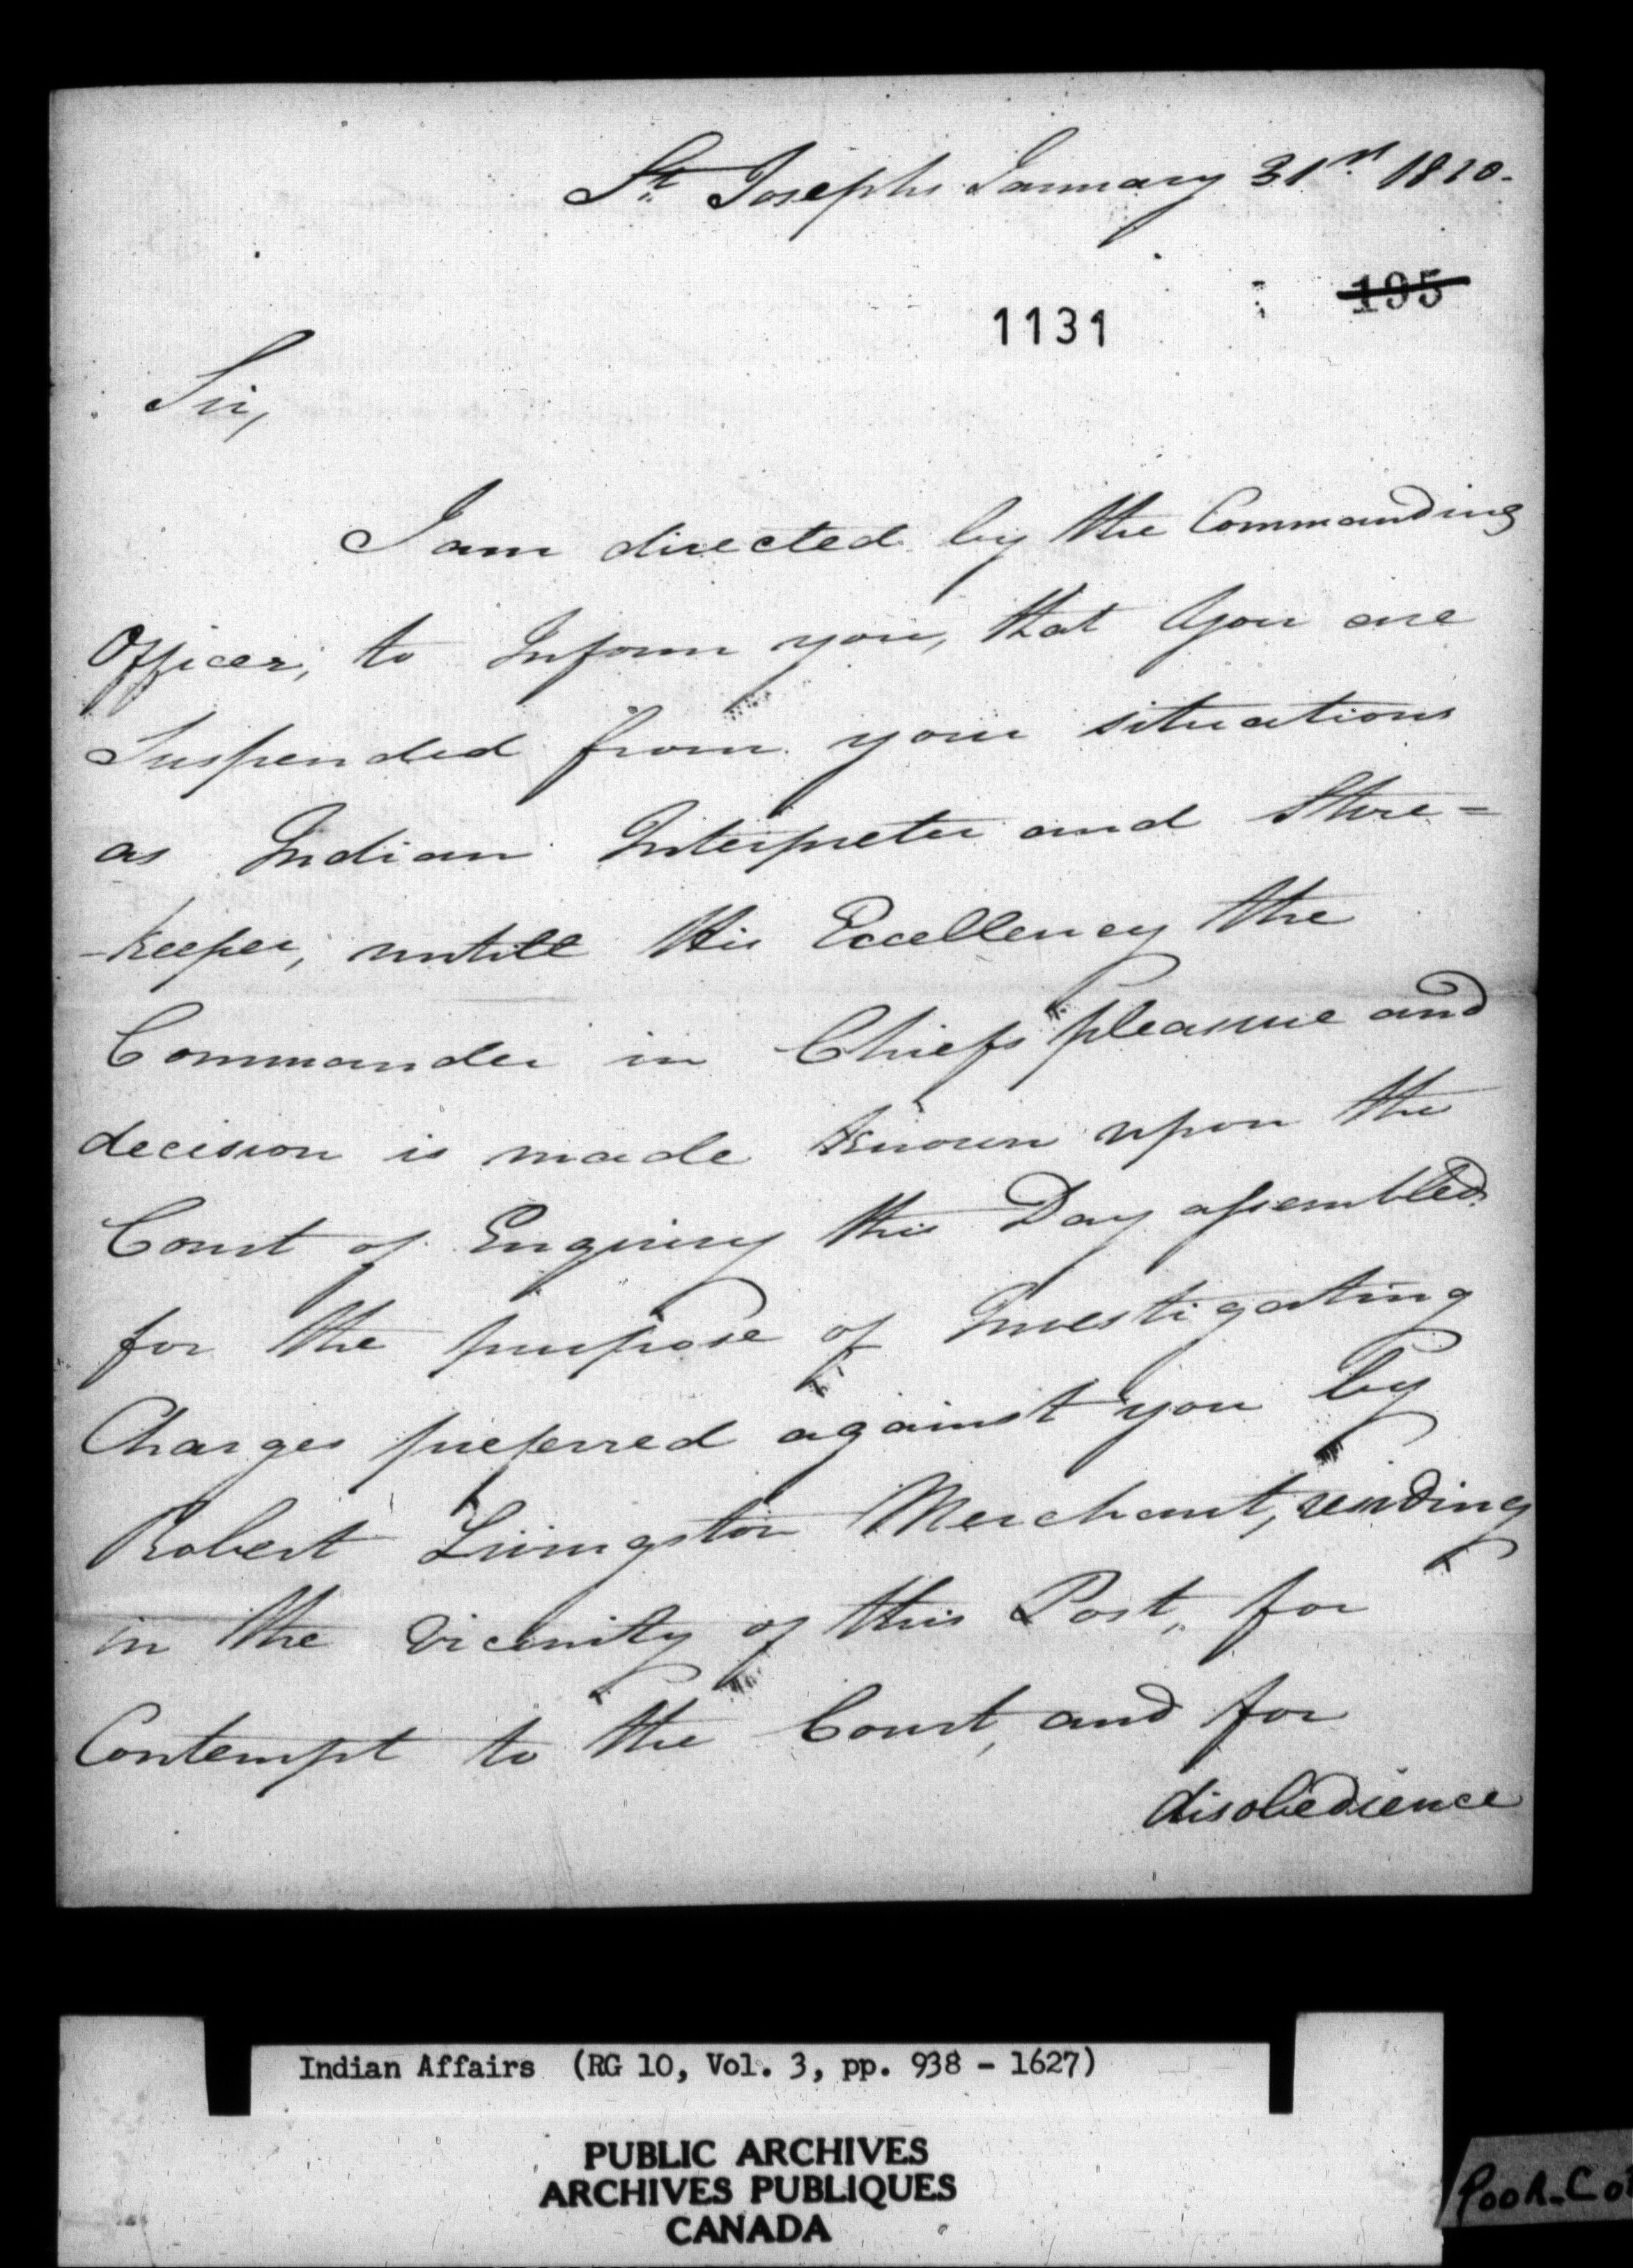 St. Josephs January 31st 1810.
195
1131
Sir,
I am directed by the Commanding
Officer, to Inform you, that You are
Suspended from your situations
as Indian Interpreter and Store=
-keeper, untill His Excellency the
Commander in Chiefs pleasure and
decision is made known upon the
Court of Enquiry this Day assembled
for the purpose of Investigating
Charges preferred against you by
Robert Livingston Merchant, residing
in the vicinity of this Post, for
Contempt to the Court, and for
disobedience
Indian Affairs (RG 10, Vol. 3, pp. 938 - 1627)
PUBLIC ARCHIVES
ARCHIVES PUBLIQUES
CANADA